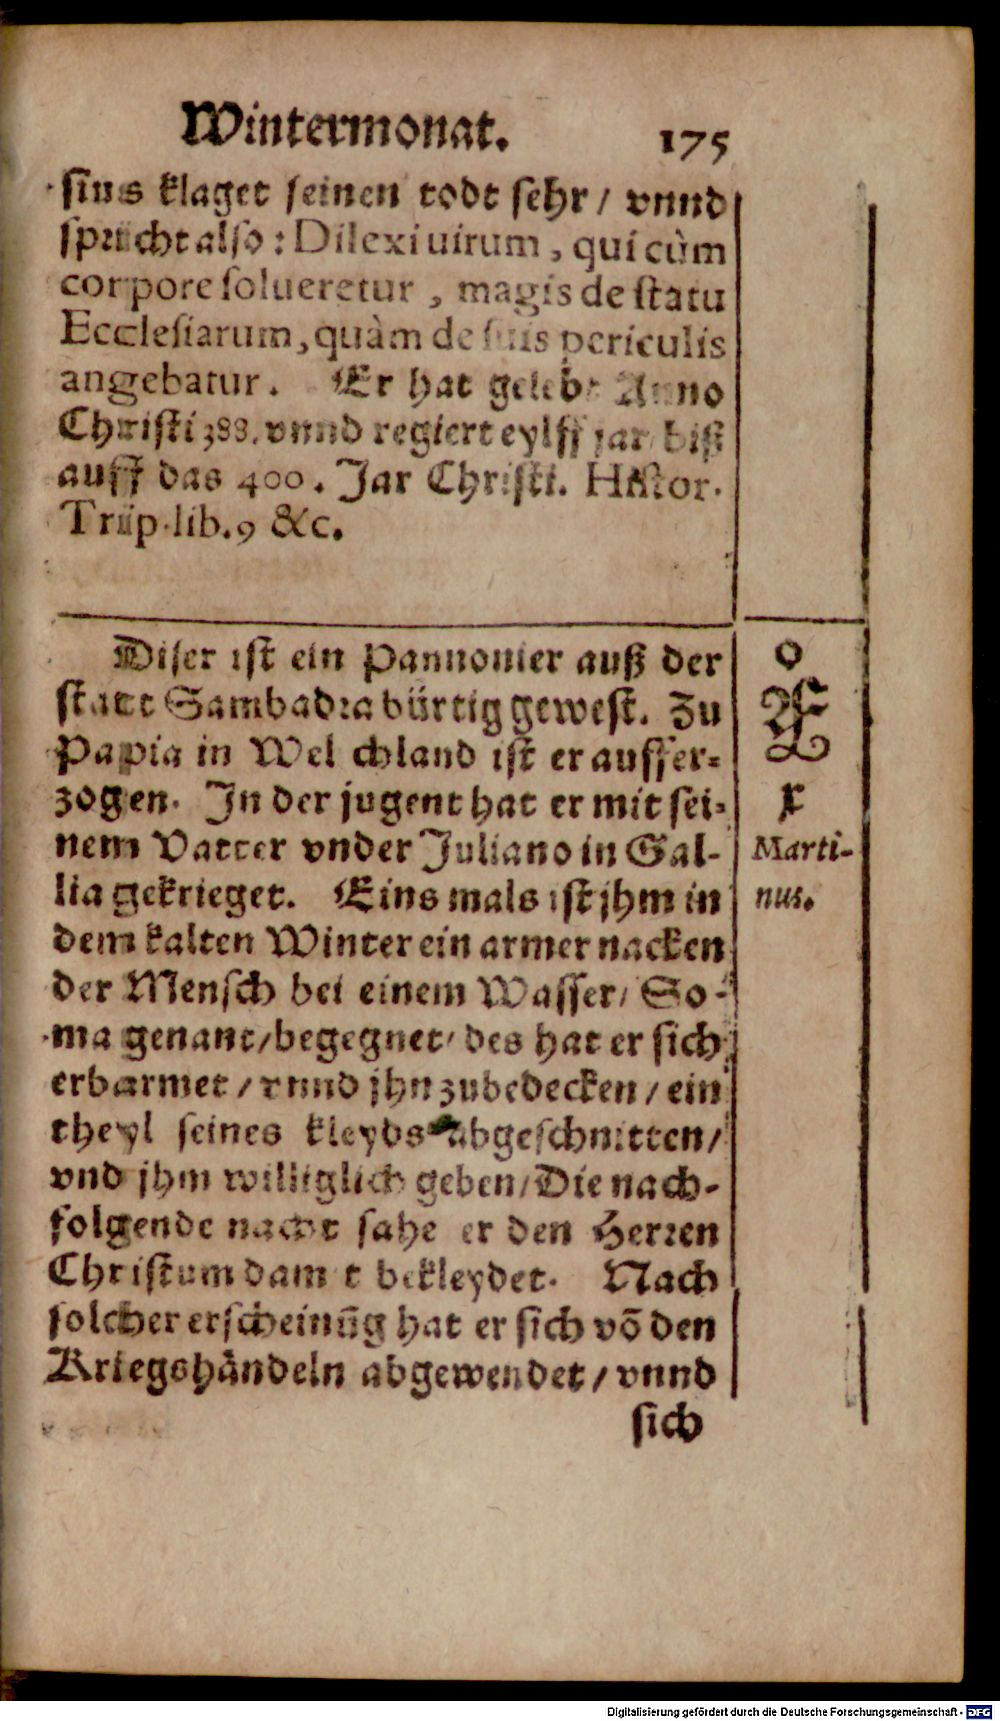 Wintermonat. 175
sius klaget seinen todt sehr / vnnd
spricht also : Dilexi uirum , qui cùm
corpore solueretur , magis de statu
Ecclesiarum, quàm de suis periculis
angebatur. Er hat gelebt Anno
Christi 388. vnnd regiert eylff jar biß
auff das 400. Jar Christi. Histor.
Trip. lib. 9 &c.
Diser ist ein Pannonier auß der
statt Sambadra bürtig gewest. Zu
Papia in Welchland ist er auffer-
zogen. In der jugent hat er mit sei-
nem Vatter vnder Juliano in Gal-
lia gekrieget. Eins mals ist jhm in
dem kalten Winter ein armer nacken
der Mensch bei einem Wasser / So-
ma genant / begegnet / des hat er sich
erbarmet / vnnd jhn zubedecken / ein
theyl seines kleyds abgeschnitten /
vnd jhm williglich geben / Die nach-
folgende nacht sahe er den Herren
Christum damit bekleydet. Nach
solcher erscheinũg hat er sich võ den
Kriegshändeln abgewendet / vnnd
sich
Marti-
nus.
Digitalisierung gefördert durch die Deutsche Forschungsgemeinschaft - DFG